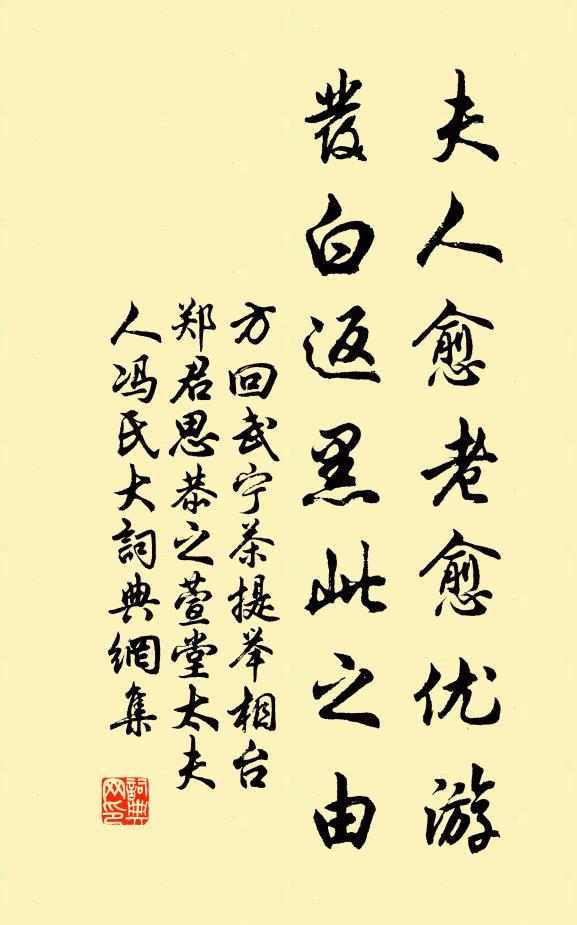 夫人愈老愈优游
发白返黑此之由
方回武宁茶提举相台
郑君思恭之萱堂太夫
人冯氏大詞典網集
詞典网印